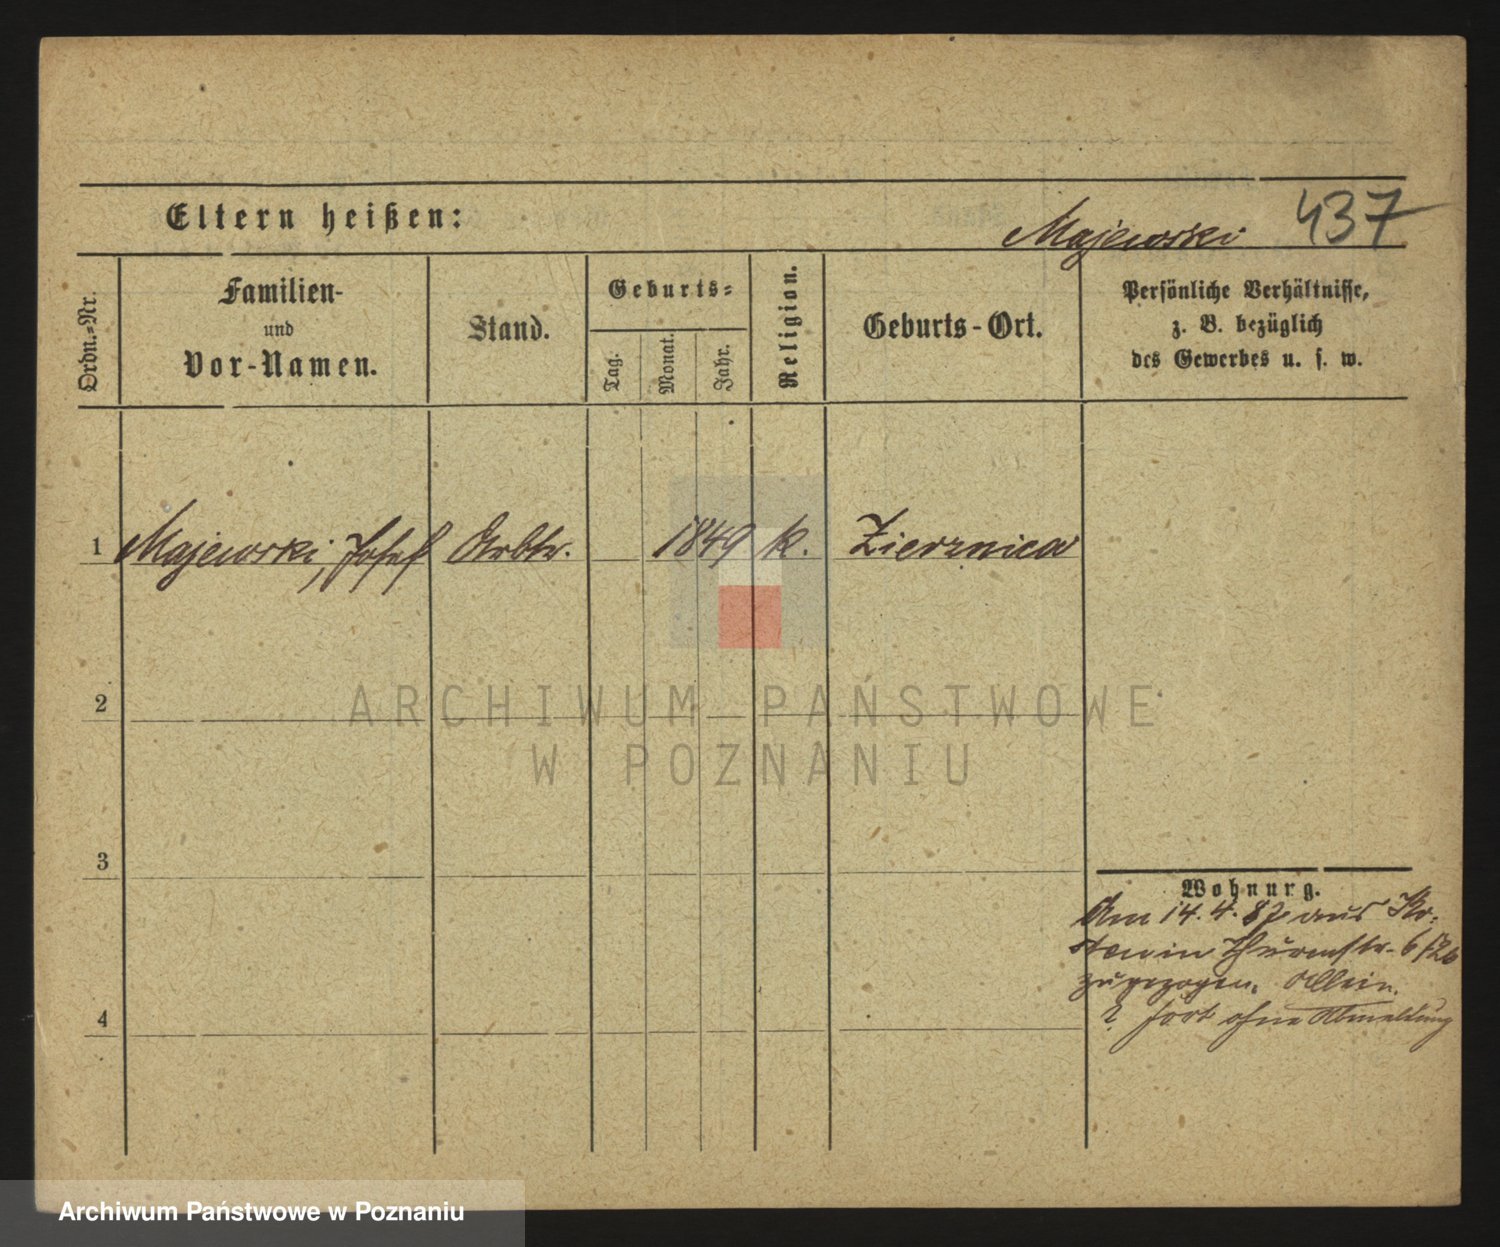 Eltern heißen:
Majewski 437
Ordn.=Nr.
Familien-
und
Vor-Namen.
Stand.
Geburts=
Tag.
Monat.
Jahr.
Religion.
Geburts-Ort.
Persönliche Verhältnisse,
z. B. bezüglich
des Gewerbes u. s. w.
1 Majewski, Josef Arbtr. 1849 k. Ziernica
2
3
4
Wohnung.
Am 14. 4. 82 aus Ko-
sten in Thurmstr. 6
zugezogen. Allein.
? fort ohne Abmeldung
ARCHIWUM PAŃSTWOWE
W POZNANIU
Archiwum Państwowe w Poznaniu